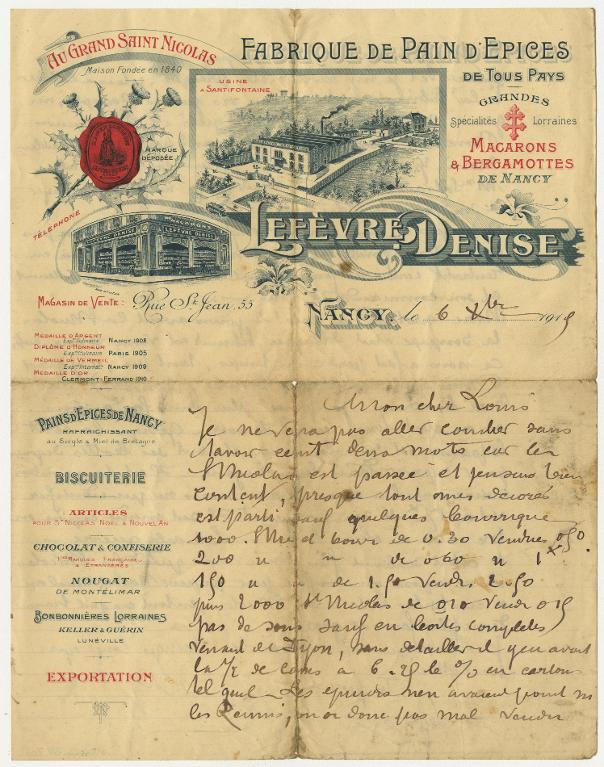 AU GRAND SAINT NICOLAS
Maison Fondée en 1840
FABRIQUE DE PAIN D'EPICES
DE TOUS PAYS
USINE
A SANTIFONTAINE
GRANDES
Spécialités Lorraines
MACARONS
& BERGAMOTTES
DE NANCY
MARQUE
DÉPOSÉE
TÉLÉPHONE
LEFÈVRE DENISE
LEFÈVRE-DENISE
MAGASIN DE VENTE: Rue St Jean, 55
NANCY, le 6 Xbre 1915
MÉDAILLE D'ARGENT
NANCY 1903
DIPLÔME D'HONNEUR
PARIS 1905
MÉDAILLE DE VERMEIL
NANCY 1909
MÉDAILLE D'OR
CLERMONT-FERRAND 1910
PAINS D'EPICES DE NANCY
RAFRAICHISSANT
au Seigle & Miel de Bretagne
BISCUITERIE
ARTICLES
POUR ST NICOLAS NOËL & NOUVEL AN
CHOCOLAT & CONFISERIE
1res MARQUES FRANÇAISES
& ÉTRANGÈRES
NOUGAT
DE MONTÉLIMAR
BONBONNIÈRES LORRAINES
KELLER & GUÉRIN
LUNÉVILLE
EXPORTATION
Mon cher Louis
Je ne veux pas aller coucher sans
t'avoir écrit deux mots car la
St Nicolas est passée et j'en suis bien
content, presque tout mes décorés
est parti sauf quelques
1000 St de 0.30 vendus 0.50.
200 " " de 0.60 " 1
150 " " de 1.50 vendu 2.50
puis 2000 St Nicolas de 010 vendu 015
pas de sauf en boîtes complètes
venant de Dijon, sans détailler il y en avait
la 1/2 de à 6.25 le % en cartons
tel quel. Les n'en avaient point ni
les Réunis, on a donc pas mal vendu